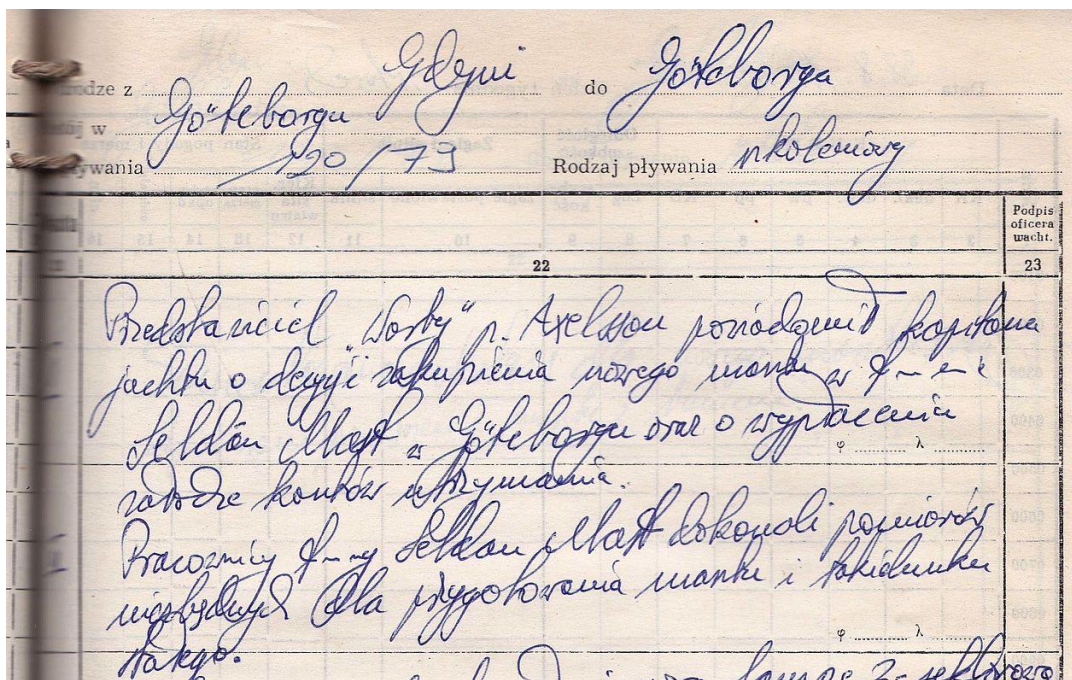 odze z Gdyni do Göteborga
ój w Göteborgu
ływania 120/79 Rodzaj pływania szkoleniowy
Podpis
oficera
wacht.
22 23
Przedstawiciel „Warty" p. Axelsson powiadomił kapitana
jachtu o decyzji zakupienia nowego masztu w f-m-e
Seldén Mast w Göteborgu oraz o wypłacenia
φ λ
załodze kosztów utrzymania.
Pracownicy f-my Seldén Mast dokonali pomiarów
niezbędnych dla przygotowania masztu i takielunku
φ λ
stałego.